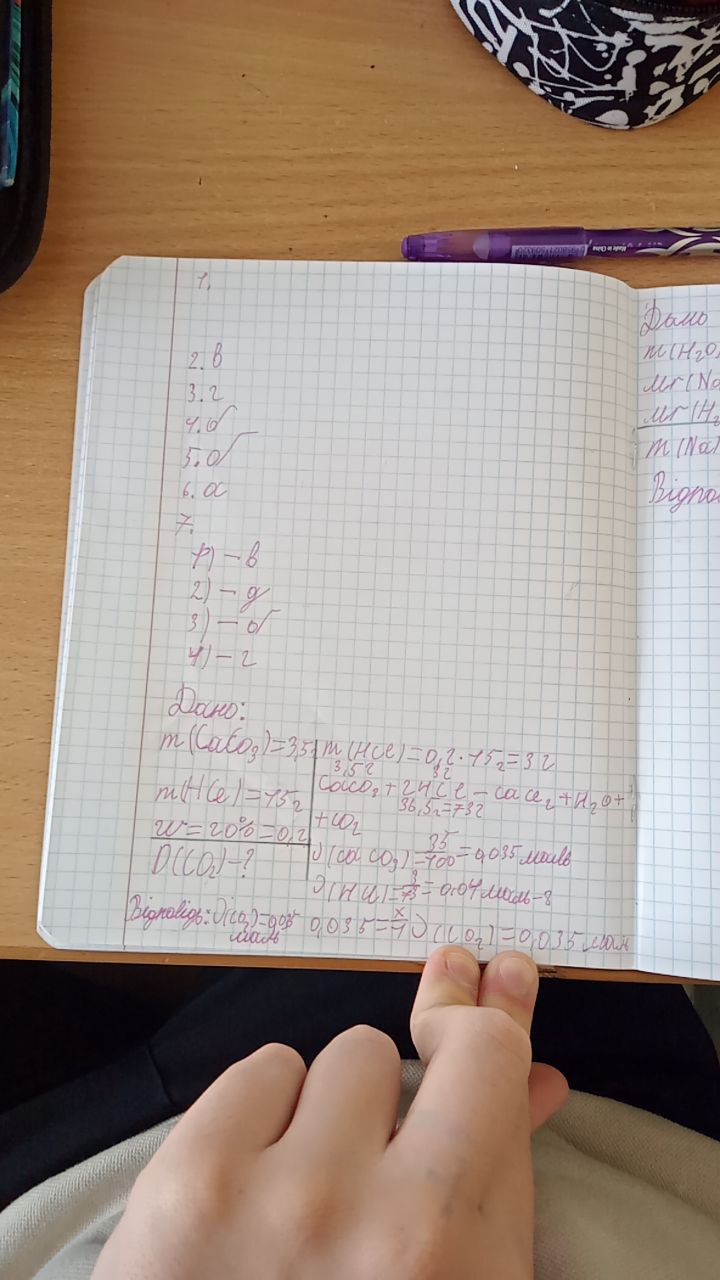 1.
2. в
3. г
4. б
5. б
6. а
7.
1) – в
2) – д
3) – б
4) – г
Дано:
m(CaCO₃)=3,5
m(HCl)=15г
w=20%=0,2
D(CO₂)–?
m(HCl)=0,2·15г=3г
3,5г 3г
CaCO₂+2HCl–CaCl₂+H₂O+
36,5г=73г
+CO₂
ν(CaCO₃)=35/100=0,035моль
ν(HCl)=3/73=0,04моль–в
0,035=x/1 ν(CO₂)=0,035моль
Відповідь: ν(CO₂)=0,035
моль
Дано
m(H₂O)
Mr(Na
Mr(H₂
m(Na
Відпов
Made in China